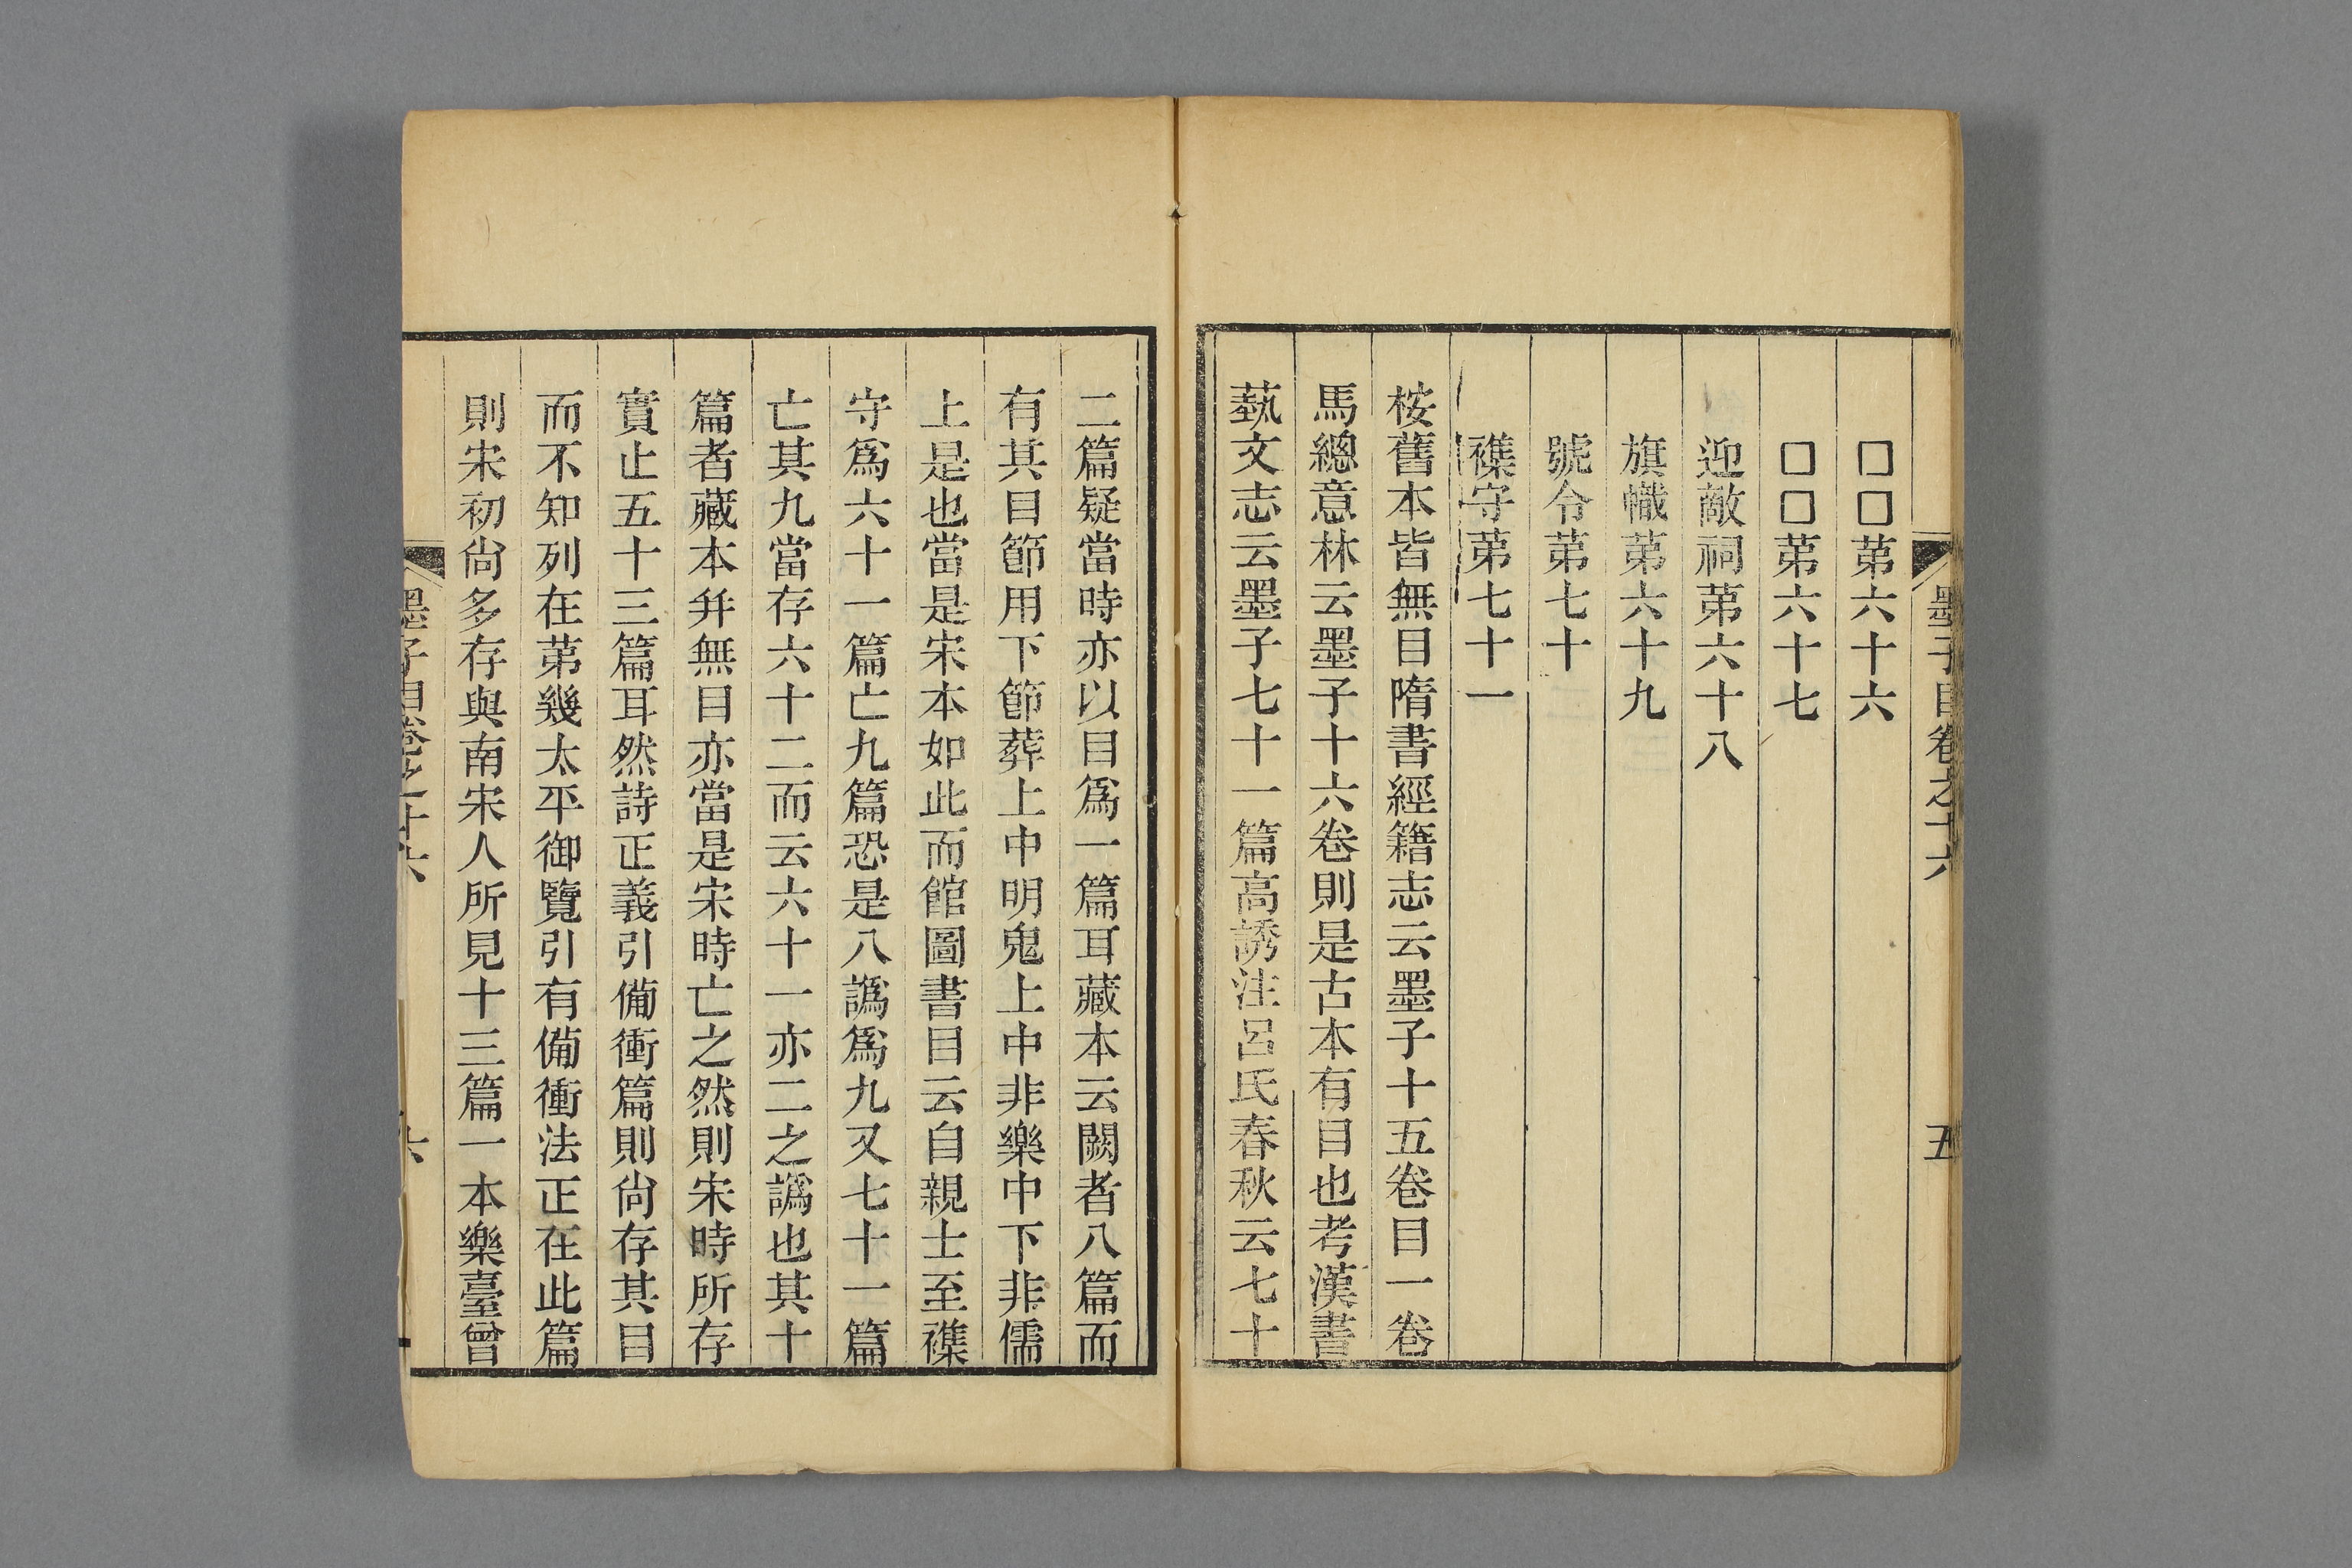 墨子目卷之十六
五
□□第六十六
□□第六十七
迎敵祠第六十八
旗幟第六十九
號令第七十
襍守第七十一
桉舊本皆無目隋書經籍志云墨子十五卷目一卷
馬總意林云墨子十六卷則是古本有目也考漢書
蓺文志云墨子七十一篇高誘注呂氏春秋云七十
二篇疑當時亦以目爲一篇耳藏本云闕者八篇而
有其目節用下節葬上中明鬼上中非樂中下非儒
上是也當是宋本如此而館圖書目云自親士至襍
守爲六十一篇亡九篇恐是八譌爲九又七十一篇
亡其九當存六十二而云六十一亦二之譌也其十
篇者藏本幷無目亦當是宋時亡之然則宋時所存
實止五十三篇耳然詩正義引備衝篇則尙存其目
而不知列在第幾太平御覽引有備衝法正在此篇
則宋初尙多存與南宋人所見十三篇一本樂臺曾
墨子目卷之十六
六